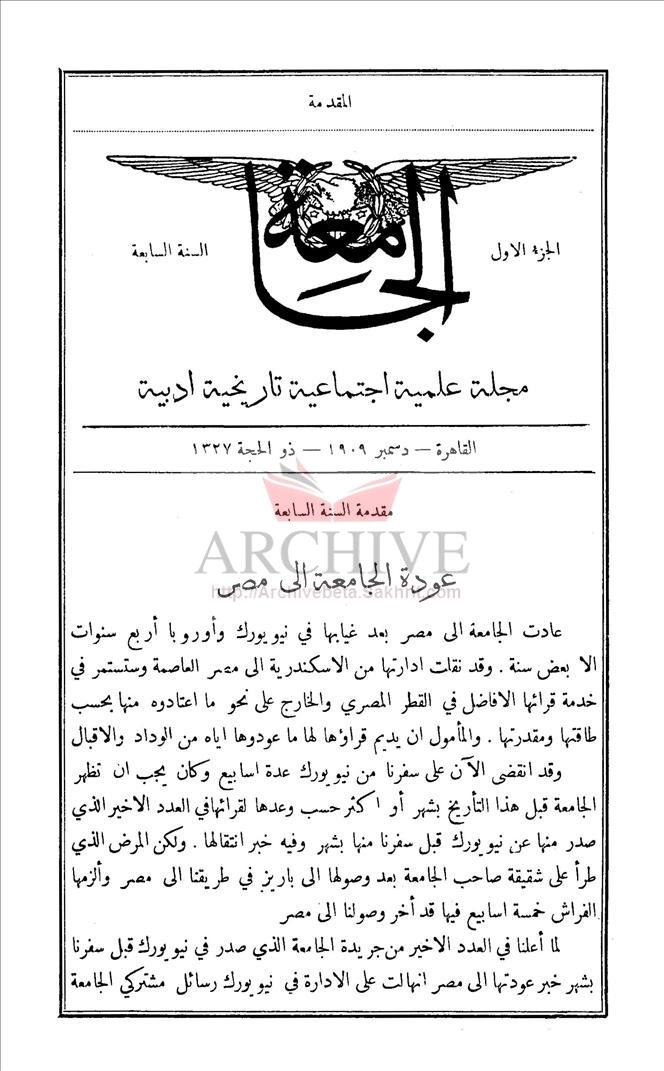 المقدمة
الجزء الاول
الجامعة
السنة السابعة
مجلة علمية اجتماعية تاريخية ادبية
القاهرة — دسمبر ١٩٠٩ — ذو الحجة ١٣٢٧
مقدمة السنة السابعة
ARCHIVE
عودة الجامعة الى مصر
http://Archivebeta.Sakhrit.com
عادت الجامعة الى مصر بعد غيابها في نيويورك وأوروبا أربع سنوات
الا بعض سنة . وقد نقلت ادارتها من الاسكندرية الى مصر العاصمة وستستمر في
خدمة قرائها الافاضل في القطر المصري والخارج على نحو ما اعتادوه منها بحسب
طاقتها ومقدرتها . والمأمول ان يديم قراؤها لها ما عودوها اياه من الوداد والاقبال
وقد انقضى الآن على سفرنا من نيويورك عدة اسابيع وكان يجب ان تظهر
الجامعة قبل هذا التأريخ بشهر أو اكثر حسب وعدها لقرائها في العدد الاخير الذي
صدر منها عن نيويورك قبل سفرنا منها بشهر وفيه خبر انتقالها . ولكن المرض الذي
طرأ على شقيقة صاحب الجامعة بعد وصولها الى باريز في طريقنا الى مصر وألزمها
الفراش خمسة اسابيع فيها قد أخر وصولنا الى مصر
لما أعلنا في العدد الاخير من جريدة الجامعة الذي صدر في نيويورك قبل سفرنا
بشهر خبر عودتها الى مصر انهالت على الادارة في نيويورك رسائل مشتركي الجامعة